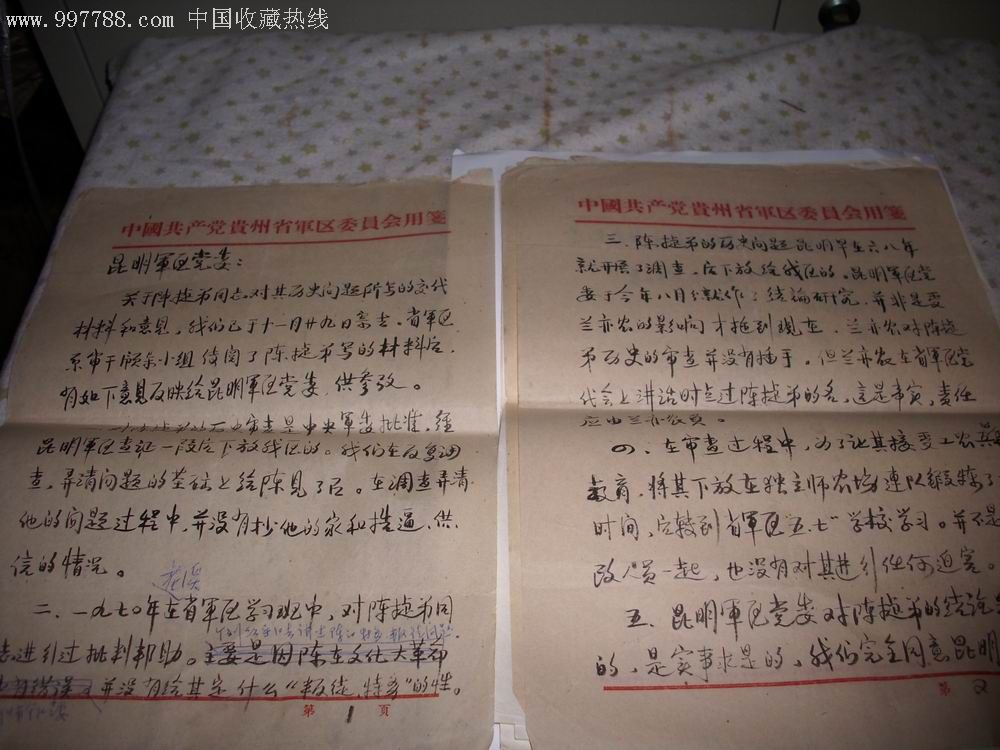 www.997788.com 中国收藏热线
中國共产党貴州省軍区委員会用箋
昆明軍区党委：
关于陈捷弟同志对其历史问题所写的交代
材料和意见，我们已于十一月廿九日寄去。省軍区
系审干领导小组传阅了陈捷弟写的材料后，
有如下意见反映给昆明軍区党委，供参攷。
审查是中央軍委批准，经
昆明軍区查证一段后下放我区的。我们在反复调
查，弄清问题的基础上给陈见了面。在调查弄清
他的问题过程中，并没有抄他的家和指逼、供
信的情况。
二、一九七〇年在省軍区学习班中，对陈捷弟同
志进行过批判帮助。主要是因陈在文化大革命
并没有给其定什么“叛徒，特务”的性。
第 1 页
中國共产党貴州省軍区委員会用箋
三、陈捷弟的历史问题昆明早在六八年
就开展了调查，后下放给我区的。昆明軍区党
委于今年八月份就作了结论研究，并非是受
兰亦农的影响才拖到现在。兰亦农对陈捷
弟历史的审查并没有插手。但兰亦农在省軍区党
代会上讲话时点过陈捷弟的名，这是事实，责任
应由兰亦农负。
四、在审查过程中，为了让其接受工农兵
教育，将其下放在独立师农场連队锻炼了
时间，后转到省軍区“五.七”学校学习。并不是
改人员一起，也没有对其进行任何迫害。
五、昆明軍区党委对陈捷弟的结论
的，是实事求是的，我们完全同意昆明
第 2